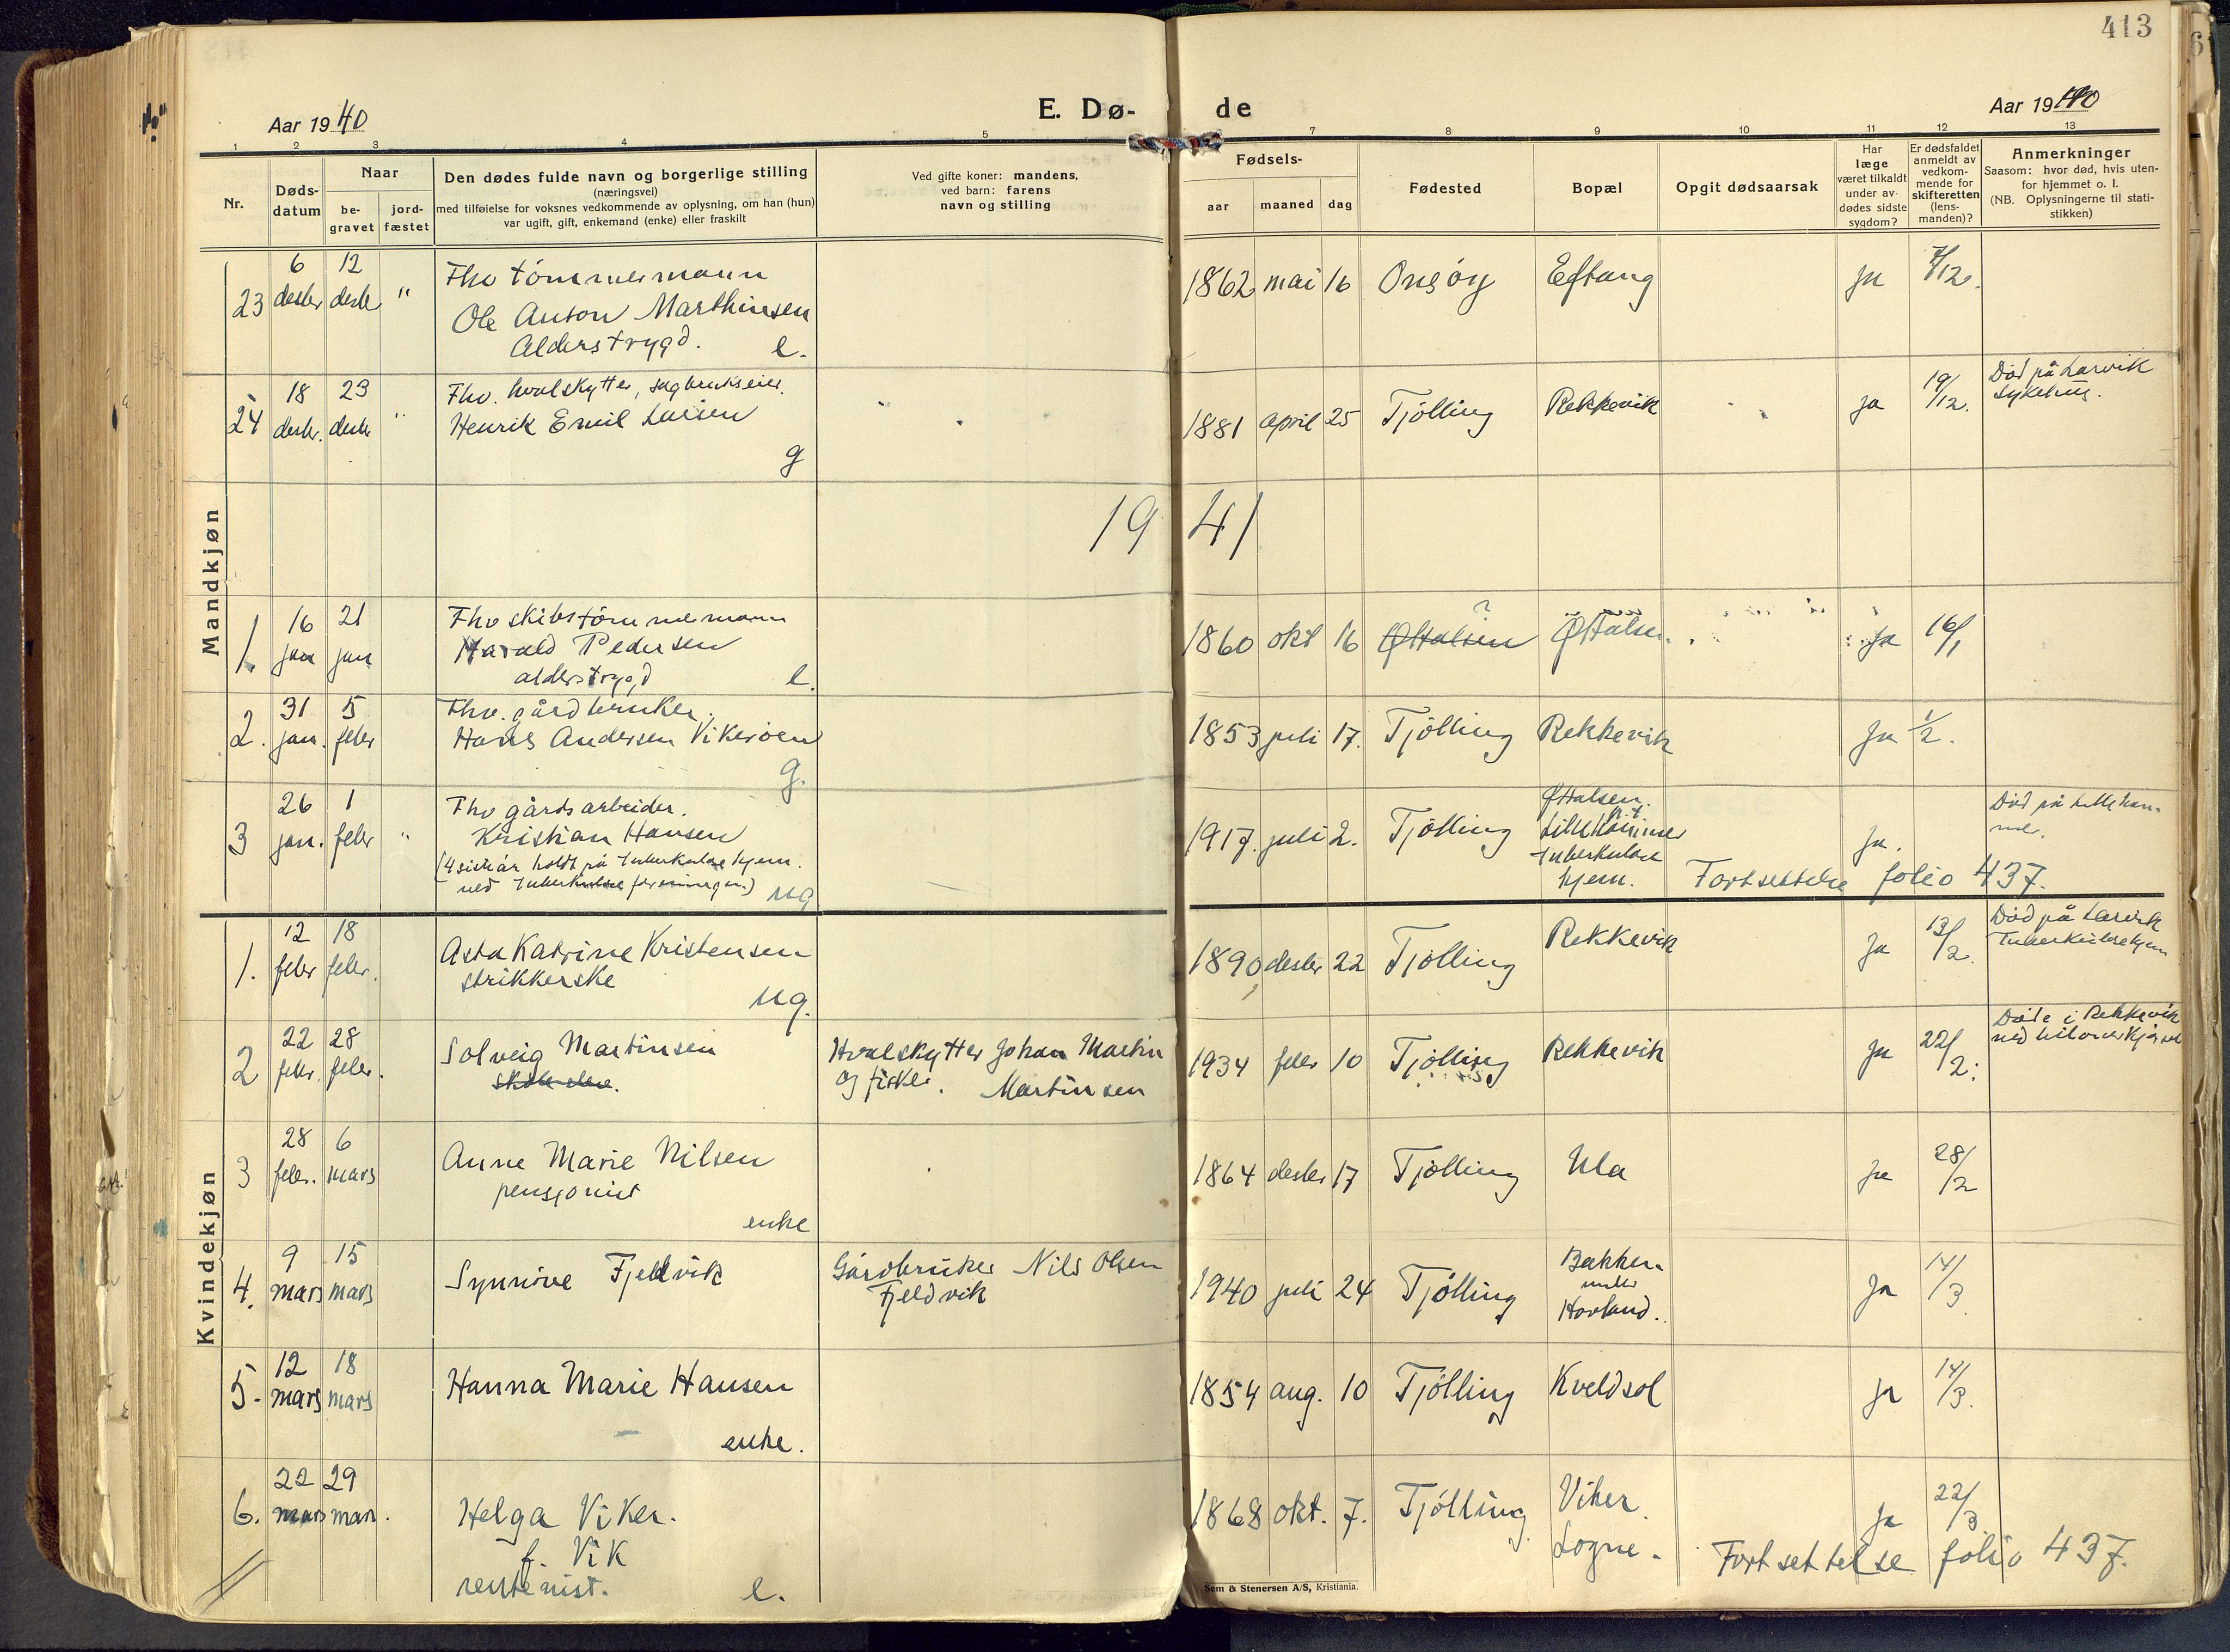 413
Aar 1940
E. Dø-
de
Aar 1940
1 2 3 4 5 7 8 9 10 11 12 13
Nr.
Døds-
datum
Naar
be-
gravet
jord-
fæstet
Den dødes fulde navn og borgerlige stilling
(næringsvei)
med tilføielse for voksnes vedkommende av oplysning, om han (hun)
var ugift, gift, enkemand (enke) eller fraskilt
Ved gifte koner: mandens,
ved barn: farens
navn og stilling
Fødsels-
aar maaned dag
Fødested
Bopæl
Opgit dødsaarsak
Har
læge
været tilkaldt
under av-
dødes sidste
sygdom?
Er dødsfaldet
anmeldt av
vedkom-
mende for
skifteretten
(lens-
manden)?
Anmerkninger
Saasom: hvor død, hvis uten-
for hjemmet o. l.
(NB. Oplysningerne til stati-
stikken)
Mandkjøn
6 12
23 desbr desbr " Fhv tømmermann
Ole Anton Marthinsen
Alderstrygd. e.
1862 mai 16 Onsøy Eftang ja 7/12.
18 23
24 desbr. desbr " Fhv. hvalskytter, sagbrukseier.
Henrik Emil Larsen
g
1881 april 25 Tjølling Rekkevik ja 19/12.
Død på Larvik
Sykehus.
1941
16 21
1. jan jan Fhv skibstømmermann
Harald Pedersen
alderstrygd e.
1860 okt 16 ØHalsen ? ØHalsen. Ja 16/1
31 5
2. jan. febr Fhv. gårdbruker.
Hans Andersen Vikerøen
g.
1853 juli 17. Tjølling Rekkevik Ja 1/2.
26 1
3 jan. febr " Fhv gårdsarbeider.
Kristian Hansen
(4 siste år holdt på tuberkulosehjem.
ved tuberkulose foreningen) ug
1917. juli 2. Tjølling ØHalsen.
Lillehammer
tuberkulose
hjem.
Ja.
Død på Lilleham-
mer.
Fortsettelse folio 437.
Kvindekjøn
12 18
1. febr febr. Asta Katrine Kristensen
strikkerske
ug.
1890 desbr 22 Tjølling Rekkevik Ja 13/2.
Død på Larvik
Tuberkulosehjem
22 28
2 febr. febr. Solveig Martinsen
skole elev.
Hvalskytter Johan Martin
og fisker. Martinsen
1934 febr 10 Tjølling Rekkevik Ja 22/2.
Døde i Rekkevik
ved biloverkjørsel
28 6
3 febr. mars Anne Marie Nilsen
pensjonist
enke
1864 desbr 17 Tjølling Ula Ja 28/2
9 15
4. mars mars Synnöve Fjeldvik
Gårdbruker Nils Olsen
Fjeldvik
1940 juli 24 Tjølling Bakken
under
Hovland.
Ja 14/3.
12 18
5. mars mars Hanna Marie Hansen
enke.
1854 aug. 10 Tjølling Kveldsol ja 14/3.
22 29
6. mars mars. Helga Viker.
f. Vik
rentenist. e.
1868 okt. 7. Tjølling Viker.
Løgne.
Ja 22/3
Fortsettelse folio 437.
Sem & Stenersen A/S, Kristiania.